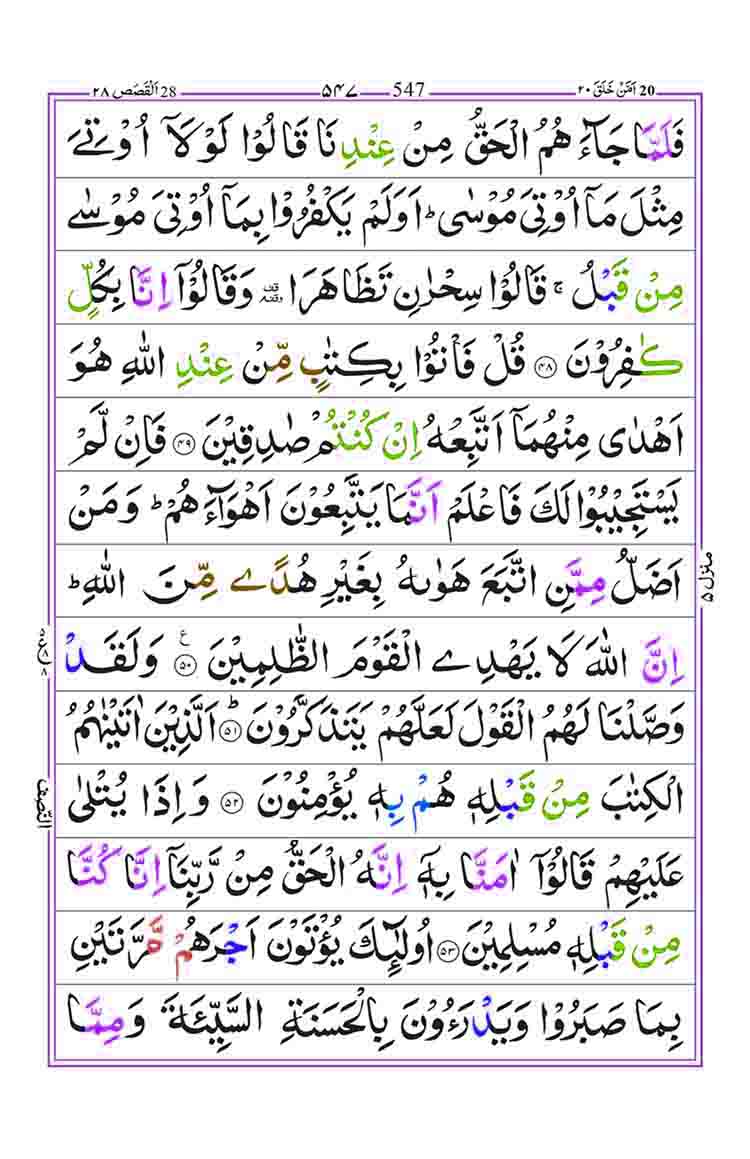 20 اَمَّنْ خَلَقَ ۲۰ 547 ۵۴۷ 28 اَلْقَصَص ۲۸
فَلَمَّا جَآءَ هُمُ الْحَقُّ مِنْ عِنْدِنَا قَالُوْا لَوْلَاۤ اُوْتِیَ
مِثْلَ مَاۤ اُوْتِیَ مُوْسٰی ؕ اَوَلَمْ یَکْفُرُوْا بِمَاۤ اُوْتِیَ مُوْسٰی
مِنْ قَبْلُ ۚ قَالُوْا سِحْرٰنِ تَظَاهَرَا ۥ وَقَالُوْۤا اِنَّا بِکُلٍّ
کٰفِرُوْنَ ۴۸ قُلْ فَاْتُوْا بِکِتٰبٍ مِّنْ عِنْدِ اللّٰهِ هُوَ
اَهْدٰی مِنْهُمَاۤ اَتَّبِعْهُ اِنْ کُنْتُمْ صٰدِقِیْنَ ۴۹ فَاِنْ لَّمْ
یَسْتَجِیْبُوْا لَكَ فَاعْلَمْ اَنَّمَا یَتَّبِعُوْنَ اَهْوَآءَ هُمْ ؕ وَمَنْ
اَضَلُّ مِمَّنِ اتَّبَعَ هَوٰىهُ بِغَیْرِ هُدًی مِّنَ اللّٰهِ ؕ
اِنَّ اللّٰهَ لَا یَهْدِی الْقَوْمَ الظّٰلِمِیْنَ ۵۰ ع وَلَقَدْ
وَصَّلْنَا لَهُمُ الْقَوْلَ لَعَلَّهُمْ یَتَذَکَّرُوْنَ ۵۱ ؕ اَلَّذِیْنَ اٰتَیْنٰهُمُ
الْکِتٰبَ مِنْ قَبْلِهٖ هُمْ بِهٖ یُؤْمِنُوْنَ ۵۲ وَاِذَا یُتْلٰی
عَلَیْهِمْ قَالُوْۤا اٰمَنَّا بِهٖۤ اِنَّهُ الْحَقُّ مِنْ رَّبِّنَاۤ اِنَّا کُنَّا
مِنْ قَبْلِهٖ مُسْلِمِیْنَ ۵۳ اُولٰٓئِكَ یُؤْتَوْنَ اَجْرَهُمْ مَّرَّتَیْنِ
بِمَا صَبَرُوْا وَیَدْرَءُوْنَ بِالْحَسَنَةِ السَّیِّئَةَ وَمِمَّا
منزل ۵
النّصف